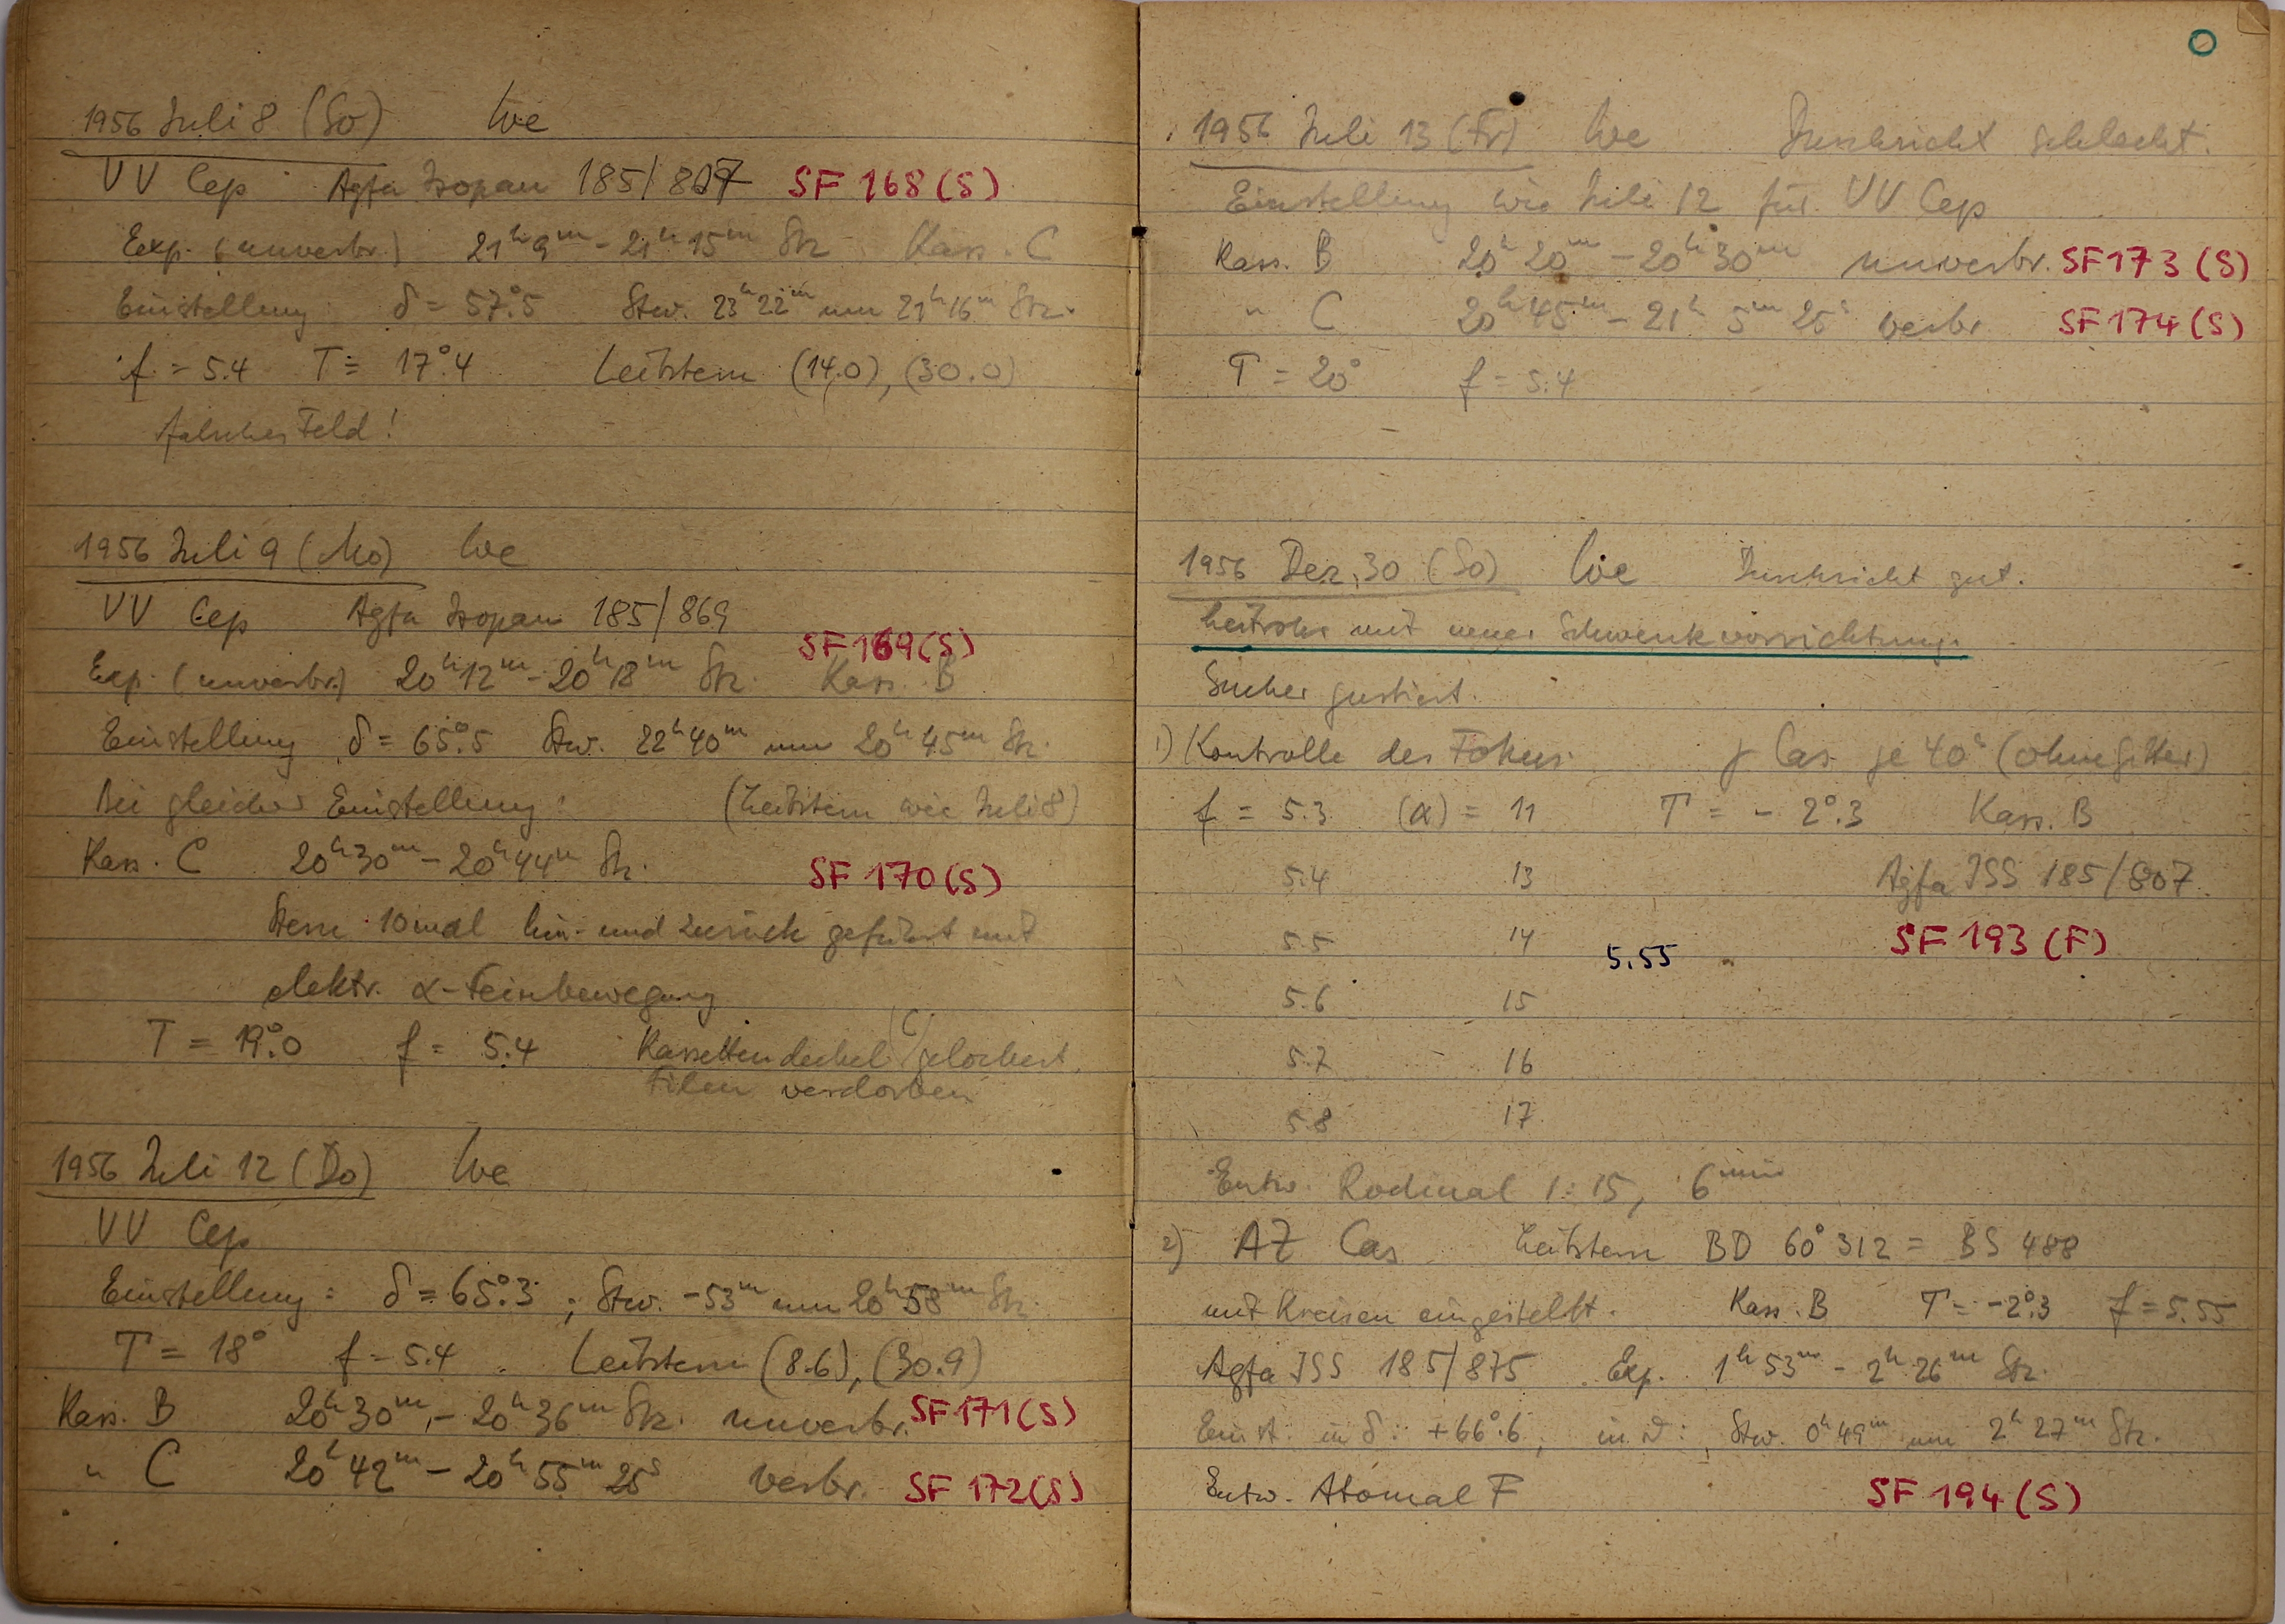 1956 Juli 8 (So) We
VV Cep Agfa Isopan 185/807 SF 168 (S)
Exp. (unverbr.) 21ʰ9ᵐ - 21ʰ15ᵐ Stz Kass. C
Einstellung δ = 57°.5 Stw. 23ʰ22ᵐ um 21ʰ16ᵐ Stz.
f = 5.4 T = 17°.4 Leitstern (14.0), (30.0)
falsches Feld!
1956 Juli 9 (Mo) We
VV Cep Agfa Isopan 185/869
SF 169 (S)
Exp. (unverbr.) 20ʰ12ᵐ - 20ʰ18ᵐ Stz. Kass. B
Einstellung δ = 65°.5 Stw. 22ʰ40ᵐ um 20ʰ45ᵐ Stz.
Bei gleicher Einstellung: (Leitstern wie Juli 8)
Kass. C 20ʰ30ᵐ - 20ʰ44ᵐ Stz. SF 170 (S)
Stern 10mal hin- und zurück geführt mit
elektr. α-Feinbewegung
T = 19°.0 f = 5.4 Kassettendeckel (C) gelockert,
Film verdorben
1956 Juli 12 (Do) We
VV Cep
Einstellung: δ = 65°.3; Stw. -53ᵐ um 20ʰ58ᵐ Stz.
T = 18° f = 5.4 Leitstern (8.6), (30.9)
Kass. B 20ʰ30ᵐ - 20ʰ36ᵐ Stz. unverbr. SF 171 (S)
" C 20ʰ42ᵐ - 20ʰ55ᵐ25ˢ verbr. SF 172 (S)
1956 Juli 13 (Fr) We Durchsicht schlecht.
Einstellung wie Juli 12 für VV Cep
Kass. B 20ʰ20ᵐ - 20ʰ30ᵐ unverbr. SF 173 (S)
" C 20ʰ45ᵐ - 21ʰ 5ᵐ 25ˢ verbr. SF 174 (S)
T = 20° f = 5.4
1956 Dez. 30 (So) We Durchsicht gut.
Leitrohr mit neuer Schwenkvorrichtung.
Sucher justiert.
1) Kontrolle des Fokus: γ Cas je 40ˢ (ohne Gitter)
f = 5.3 (α) = 11 T = - 2°.3 Kass. B
5.4 13 Agfa ISS 185/807
5.5 14 5.55 SF 193 (F)
5.6 15
5.7 16
5.8 17
Entw. Rodinal 1:15, 6ᵐⁱⁿ
2) AZ Cas Leitstern BD 60° 312 = BS 488
mit Kreisen eingestellt. Kass. B T = -2°.3 f = 5.55
Agfa ISS 185/875 Exp. 1ʰ53ᵐ - 2ʰ26ᵐ Stz.
Einst. in δ: +66°.6, in α: Stw. 0ʰ49ᵐ um 2ʰ27ᵐ Stz.
Entw. Atomal F SF 194 (S)